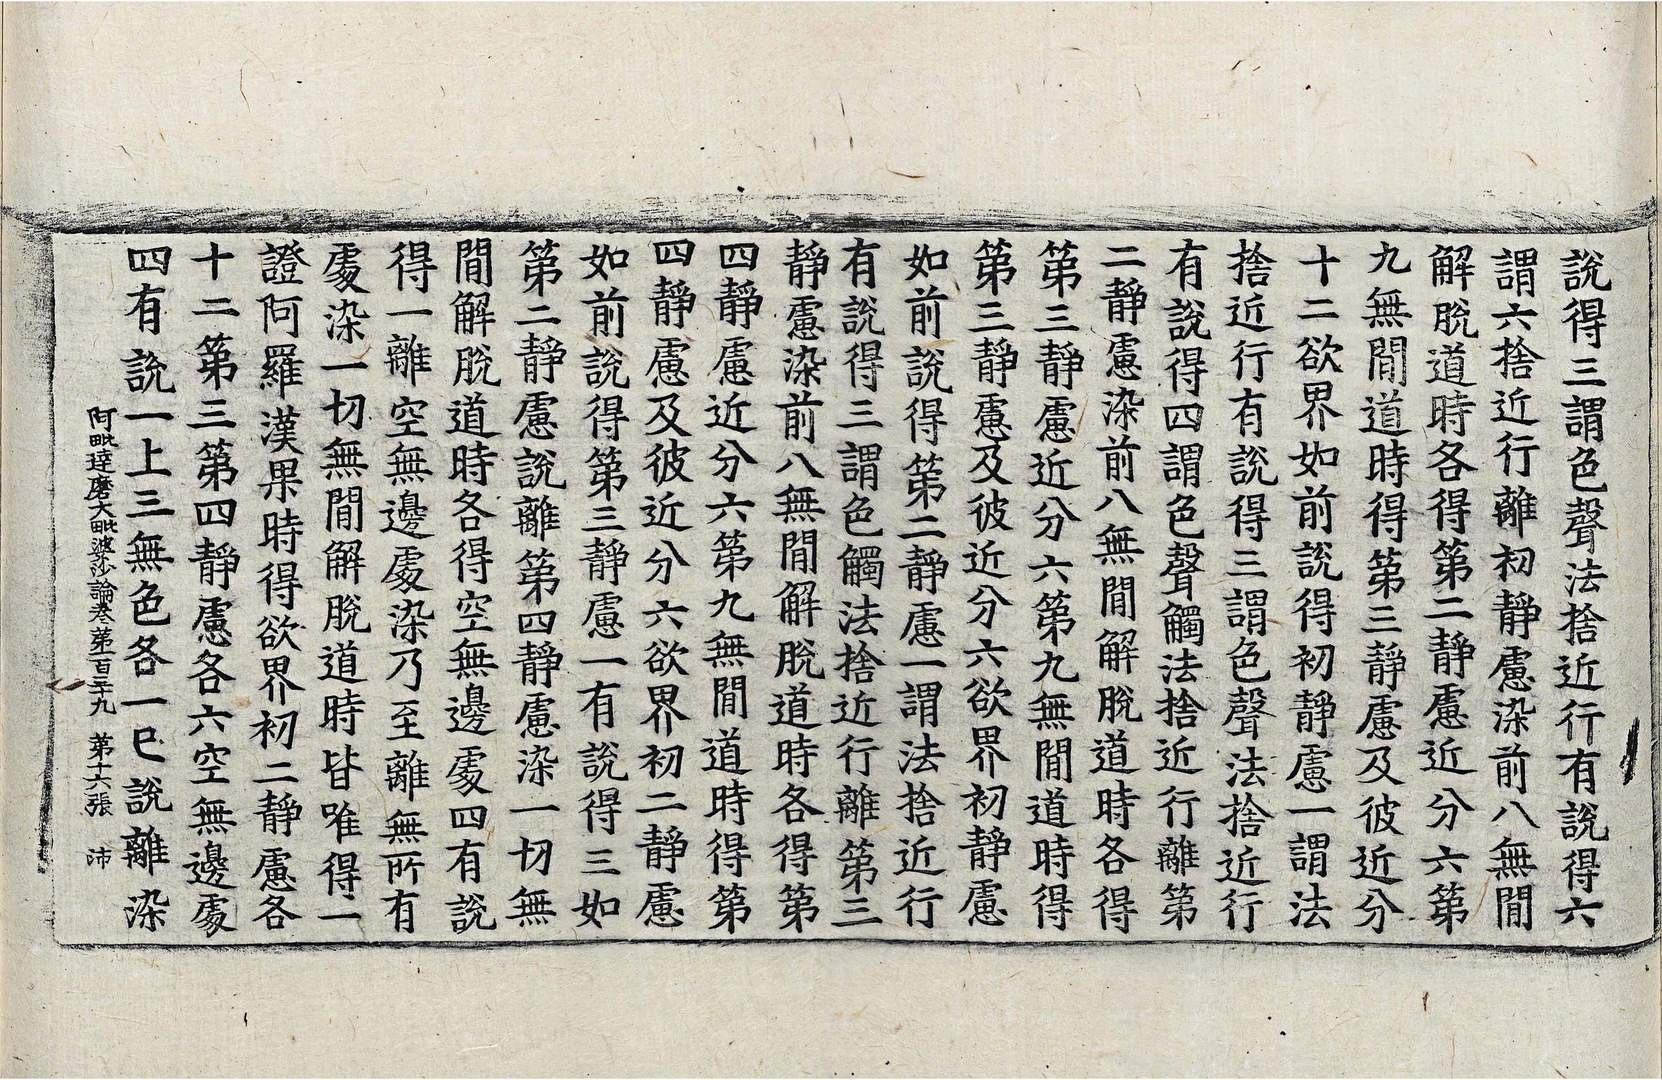 說得三謂色聲法捨近行有說得六
謂六捨近行離初靜慮染前八無間
解脫道時各得第二靜慮近分六第
九無間道時得第三靜慮及彼近分
十二欲界如前說得初靜慮一謂法
捨近行有說得三謂色聲法捨近行
有說得四謂色聲觸法捨近行離第
二靜慮染前八無間解脫道時各得
第三靜慮近分六第九無間道時得
第三靜慮及彼近分六欲界初靜慮
如前說得第二靜慮一謂法捨近行
有說得三謂色觸法捨近行離第三
靜慮染前八無間解脫道時各得第
四靜慮近分六第九無間道時得第
四靜慮及彼近分六欲界初二靜慮
如前說得第三靜慮一有說得三如
第二靜慮說離第四靜慮染一切無
間解脫道時各得空無邊處四有說
得一離空無邊處染乃至離無所有
處染一切無間解脫道時皆唯得一
證阿羅漢果時得欲界初二靜慮各
十二第三第四靜慮各六空無邊處
四有說一上三無色各一已說離染
阿毗達磨大毗婆沙論卷第一百三十九 第十六張 沛